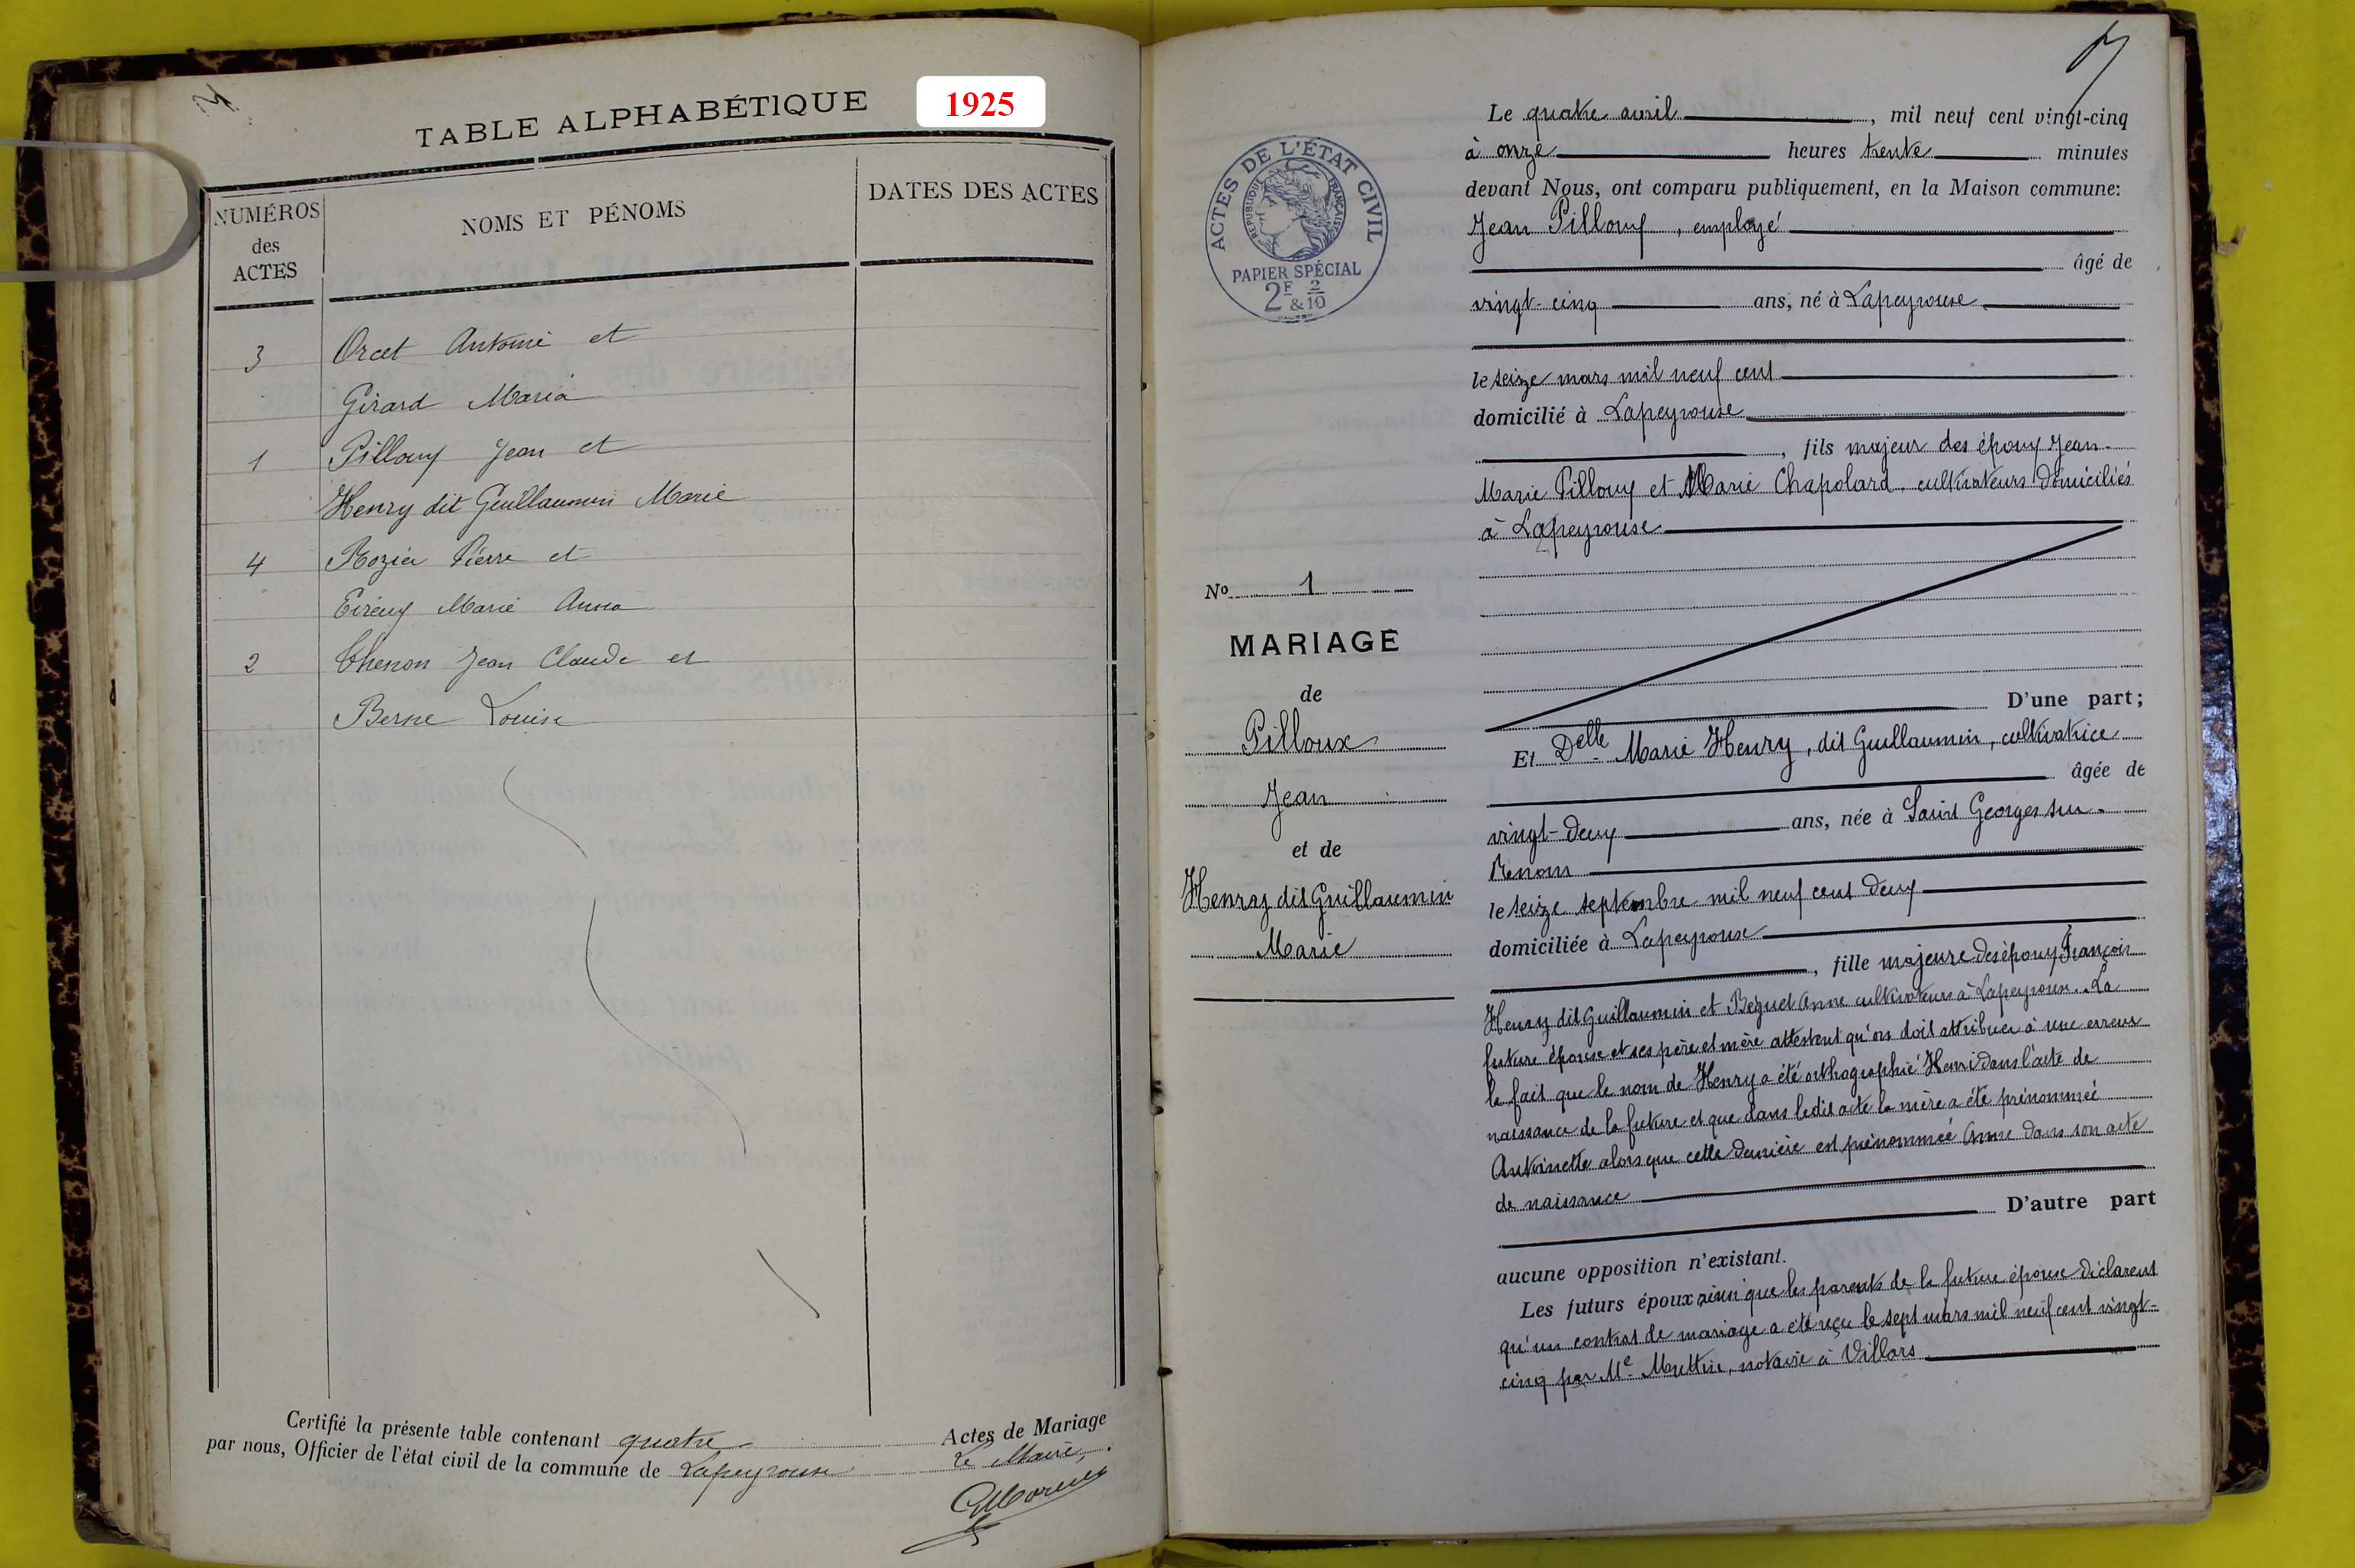 1925
TABLE ALPHABÉTIQUE
NUMÉROS
des
ACTES
NOMS ET PÉNOMS
DATES DES ACTES
3 Orcet Antoine et
Girard Maria
1 Pilloux Jean et
Henry dit Guillaumin Marie
4 Rozier Pierre et
Marie Anna
2 Thenon Jean Claude et
Berne Louise
Certifié la présente table contenant quatre Actes de Mariage
par nous, Officier de l'état civil de la commune de Lapeyrouse Le Maire,
ACTES DE L'ÉTAT CIVIL
REPUBLIQUE FRANÇAISE
PAPIER SPÉCIAL
2F & 2/10
No 1
MARIAGE
de
Pilloux
Jean
et de
Henry dit Guillaumin
Marie
Le quatre avril, mil neuf cent vingt-cinq
à onze heures trente minutes
devant Nous, ont comparu publiquement, en la Maison commune:
Jean Pilloux, employé
âgé de
vingt-cinq ans, né à Lapeyrouse
le seize mars mil neuf cent
domicilié à Lapeyrouse
, fils majeur des époux Jean-
Marie Pilloux et Marie Chapolard, cultivateurs domiciliés
à Lapeyrouse
D'une part;
Et Delle Marie Henry, dit Guillaumin, cultivatrice
âgée de
vingt-deux ans, née à Saint Georges sur-
Renom
le seize septembre mil neuf cent deux
domiciliée à Lapeyrouse
, fille majeure des époux François
Henry dit Guillaumin et Beguet Anne cultivateurs à Lapeyrouse. La
future épouse et ses père et mère attestent qu'on doit attribuer à une erreur
le fait que le nom de Henry a été orthographié Henri dans l'acte de
naissance de la future et que dans ledit acte la mère a été prénommée
Antoinette alors que cette dernière est prénommée Anne dans son acte
de naissance
D'autre part
aucune opposition n'existant.
Les futurs époux ainsi que les parents de la future épouse déclarent
qu'un contrat de mariage a été reçu le sept mars mil neuf cent vingt-
cinq par Me notaire à Villars